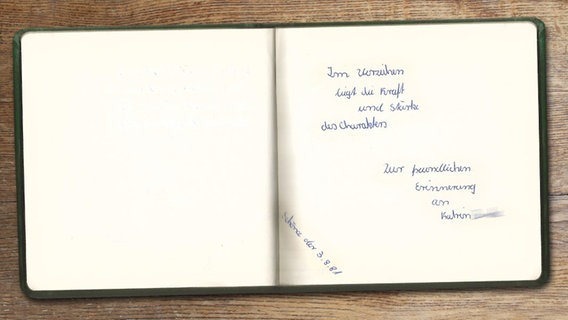 Im Verzeihen
liegt die Kraft
und Stärke
des Charakters
Zur freundlichen
Erinnerung
an
Katrin
den 3.8.81